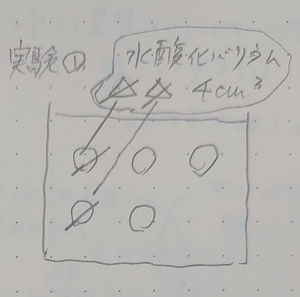 実験①
水酸化バリウム
4cm³